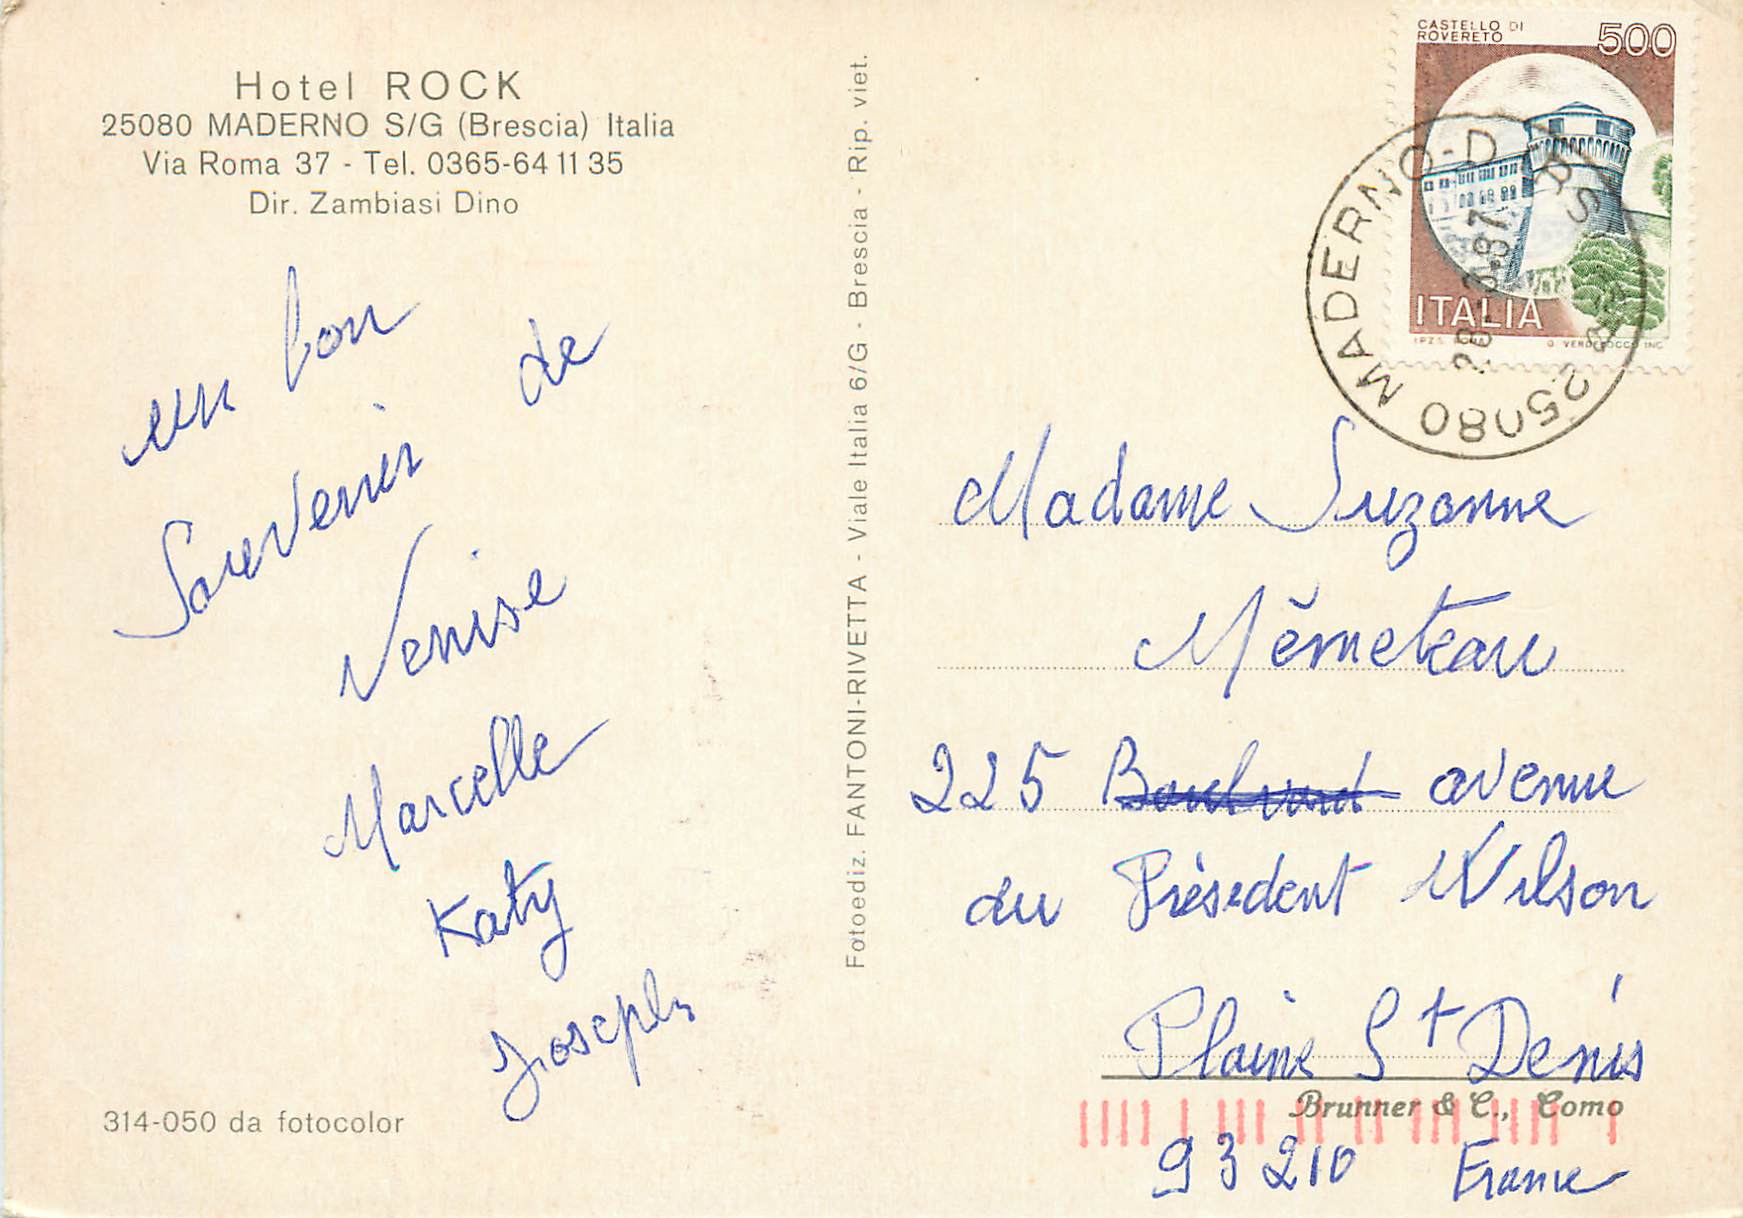 Hotel ROCK
25080 MADERNO S/G (Brescia) Italia
Via Roma 37 - Tel. 0365-64 11 35
Dir. Zambiasi Dino
un bon
Souvenir de
Venise
Marcelle
Katy
Joseph
314-050 da fotocolor
Fotoediz. FANTONI-RIVETTA - Viale Italia 6/G - Brescia - Rip. viet.
CASTELLO DI
ROVERETO
500
ITALIA
I.P.Z.S. ROMA
25080 MADERNO-D
87
Madame Suzanne
Mémeteau
225 Boulevard avenue
du Président Wilson
Plaine St Denis
Brunner & C., Como
93210 France